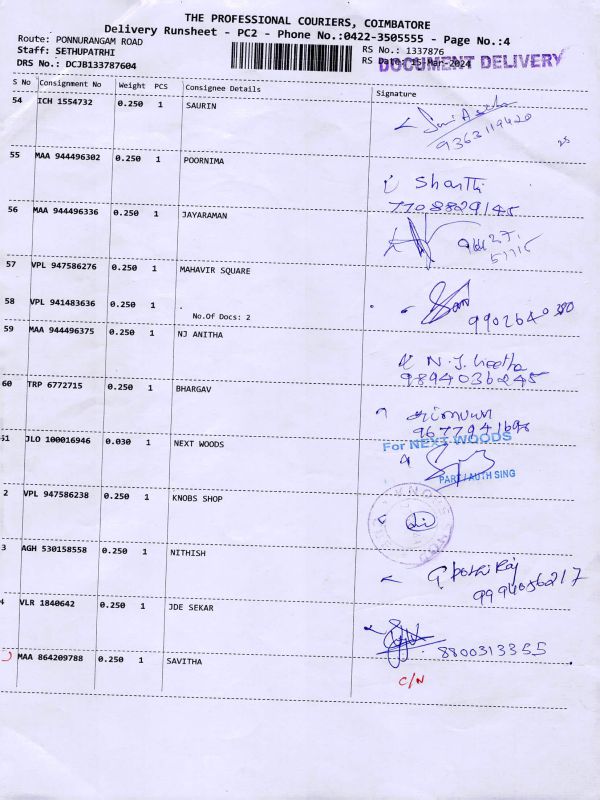 THE PROFESSIONAL COURIERS, COIMBATORE
Delivery Runsheet - PC2 - Phone No.:0422-3505555 - Page No.:4
Route: PONNURANGAM ROAD
RS No.: 1337876
Staff: SETHUPATRHI
RS Date: 15-Mar-2024
DOCUMENT DELIVERY
DRS No.: DCJB133787604
S No Consignment No Weight PCS Consignee Details Signature
54 ICH 1554732 0.250 1 SAURIN
9363119420
55 MAA 944496302 0.250 1 POORNIMA
Shanthi
7708829145
56 MAA 944496336 0.250 1 JAYARAMAN
57 VPL 947586276 0.250 1 MAHAVIR SQUARE
58 VPL 941483636 0.250 1 .
No.Of Docs: 2
59 MAA 944496375 0.250 1 NJ ANITHA
N.J. Geetha
9894036245
60 TRP 6772715 0.250 1 BHARGAV
61 JLO 100016946 0.030 1 NEXT WOODS
For NEXT WOODS
PART / AUTH SING
2 VPL 947586238 0.250 1 KNOBS SHOP
3 AGH 530158558 0.250 1 NITHISH
9994056217
4 VLR 1840642 0.250 1 JDE SEKAR
8800313355
MAA 864209788 0.250 1 SAVITHA
C/N